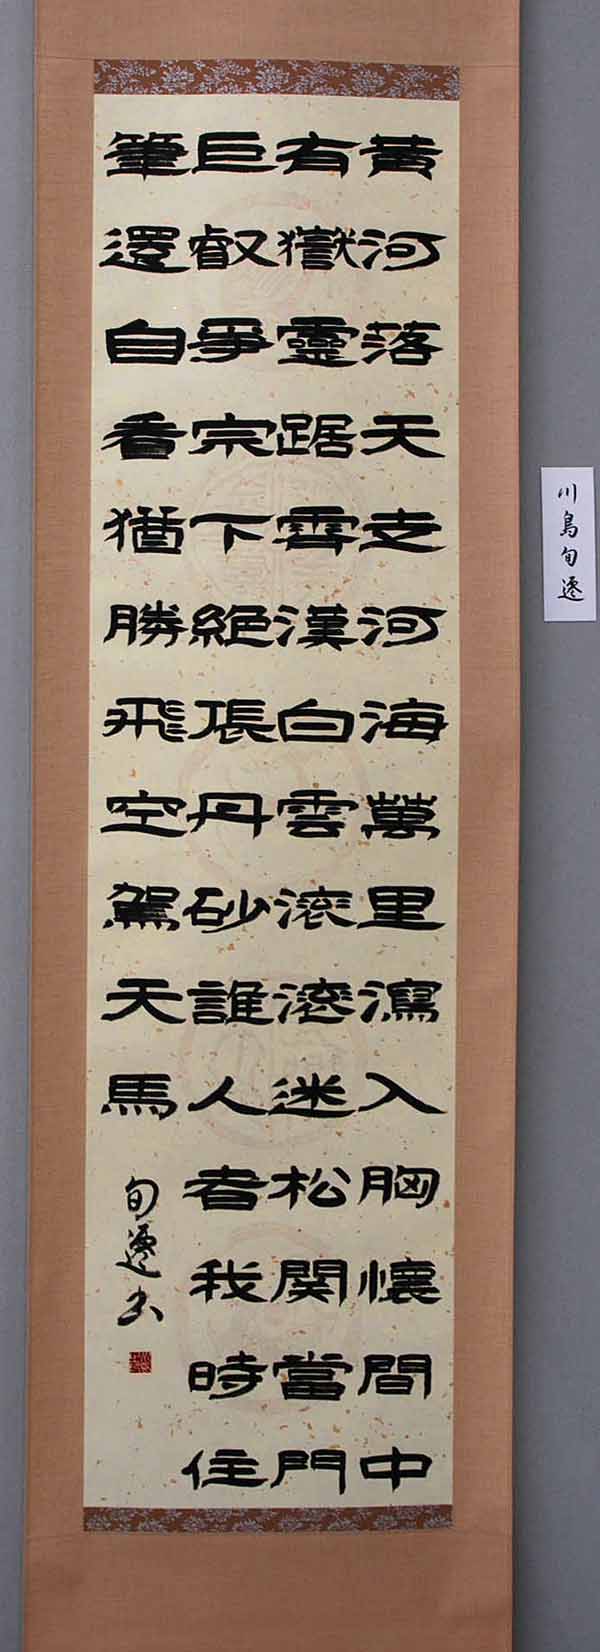 黄河落天走河海萬里瀉入胸懷間中
有獄靈踞霄漢白雲滾滾迷松關當門
巨叡爭宗下絶張丹砂誰人者我時住
筆還自看猶勝飛空駕天馬
旬遷书
川島旬遷